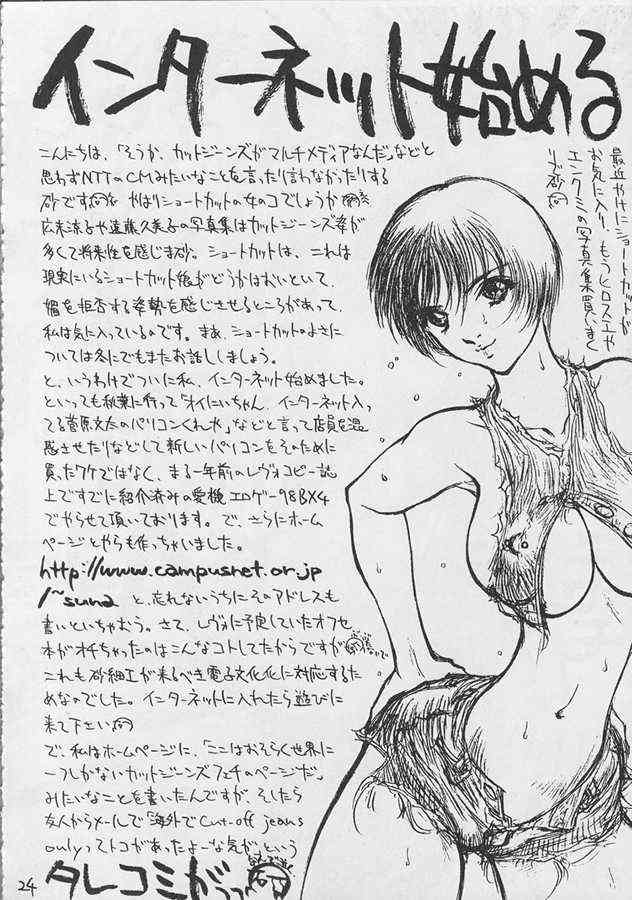 インターネット始める
最近やけにショートカットが
お気に入り、もうヒロスエや
エンクミの写真集買いまく
り砂
こんにちは、「そうか、カットジーンズがマルチメディアなんだ」などと
思わずNTTのCMみたいなことを言ったり言わなかったりする
砂です やはりショートカットの女のコでしょうか
広末涼子や遠藤久美子の写真集はカットジーンズ姿が
多くて将来性を感じま砂。ショートカットは、これは
現実にいるショートカット娘がどうかはおいといて、
媚を拒否する姿勢を感じさせるところがあって、
私は気に入っているのです。まぁ、ショートカットのよさに
ついては冬にでもまたお話ししましょう。
と、いうわけでついに私、インターネット始めました。
といっても秋葉に行って「オイにいちゃん、インターネット入っ
てる菅原文太のパソコンくれや」などと言って店員を混
惑させたりなどして新しいパソコンをそのために
買ったワケではなく、まる一年前のレヴォコピー誌
上ですでに紹介済みの愛機、エロゲー98BX4
でやらせて頂いております。で、さらにホーム
ページとやらも作っちゃいました。
http://www.campusnet.or.jp
/~suna と、忘れないうちにそのアドレスも
書いといちゃおう。さて、レヴォに予定していたオフセ
本がオチちゃったのはこんなコトしてたからですが
これも砂細工が来るべき電子文化化に対応するた
めなのでした。インターネットに入れたら遊びに
来て下さい
で、私はホームページに、「ここはおそらく世界に
一つしかないカットジーンズフェチのページだ」
みたいなことを書いたんですが、そしたら
友人からメールで「海外でcut-off jeans
onlyってトコがあったよーな気が」という
タレコミがっっ
24